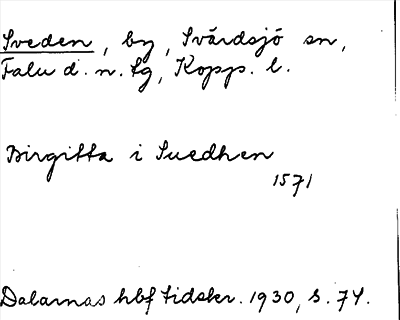 Sveden, by, Svärdsjö sn,
Falu d. n. tg, Kopps. l.
Birgitta i Suedhen
1571
Dalarnas hbf tidskr. 1930, s. 74.